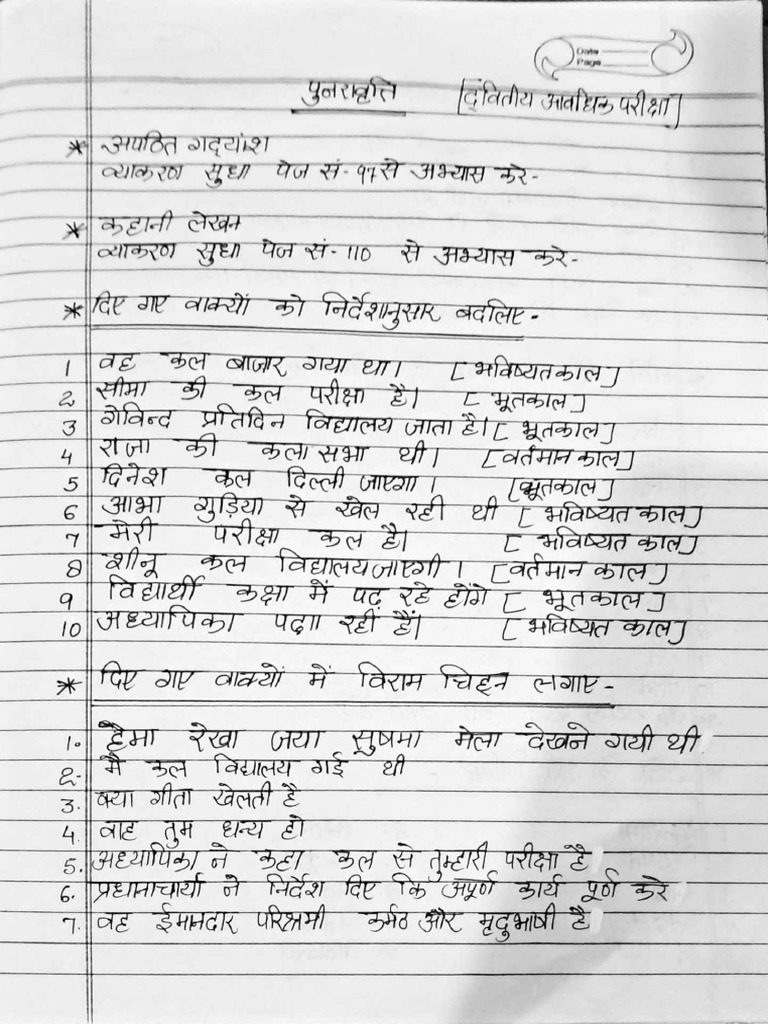 Date
Page
पुनरावृत्ति [द्वितीय आवधिक परीक्षा]
* अपठित गद्यांश
व्याकरण सुधा पेज सं- 97 से अभ्यास करे-
* कहानी लेखन
व्याकरण सुधा पेज सं- 110 से अभ्यास करे-
* दिए गए वाक्यों को निर्देशानुसार बदलिए-
1 वह कल बाजार गया था। [भविष्यतकाल]
2 सीमा की कल परीक्षा है। [भूतकाल]
3 गोविन्द प्रतिदिन विद्यालय जाता है। [भूतकाल]
4 राजा की कल सभा थी। [वर्तमान काल]
5 दिनेश कल दिल्ली जाएगा। [भूतकाल]
6 आभा गुड़िया से खेल रही थी [भविष्यत काल]
7 मेरी परीक्षा कल है। [भविष्यत काल]
8 शीनू कल विद्यालय जाएगी। [वर्तमान काल]
9 विद्यार्थी कक्षा में पढ़ रहे होंगे [भूतकाल]
10 अध्यापिका पढ़ा रहीं हैं। [भविष्यत काल]
* दिए गए वाक्यों में विराम चिह्न लगाए-
1. हेमा रेखा जया सुषमा मेला देखने गयी थी
2. मै कल विद्यालय गई थी
3. क्या गीता खेलती है
4. वाह तुम धन्य हो
5. अध्यापिका ने कहा कल से तुम्हारी परीक्षा है
6. प्रधानाचार्या ने निर्देश दिए कि अपूर्ण कार्य पूर्ण करे
7. वह ईमानदार परिश्रमी कर्मठ और मृदुभाषी है